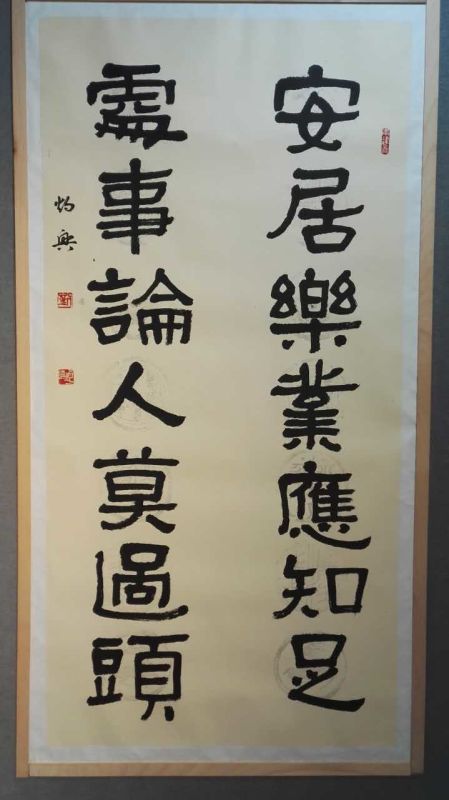 安居樂業應知足
處事論人莫過頭
炳興